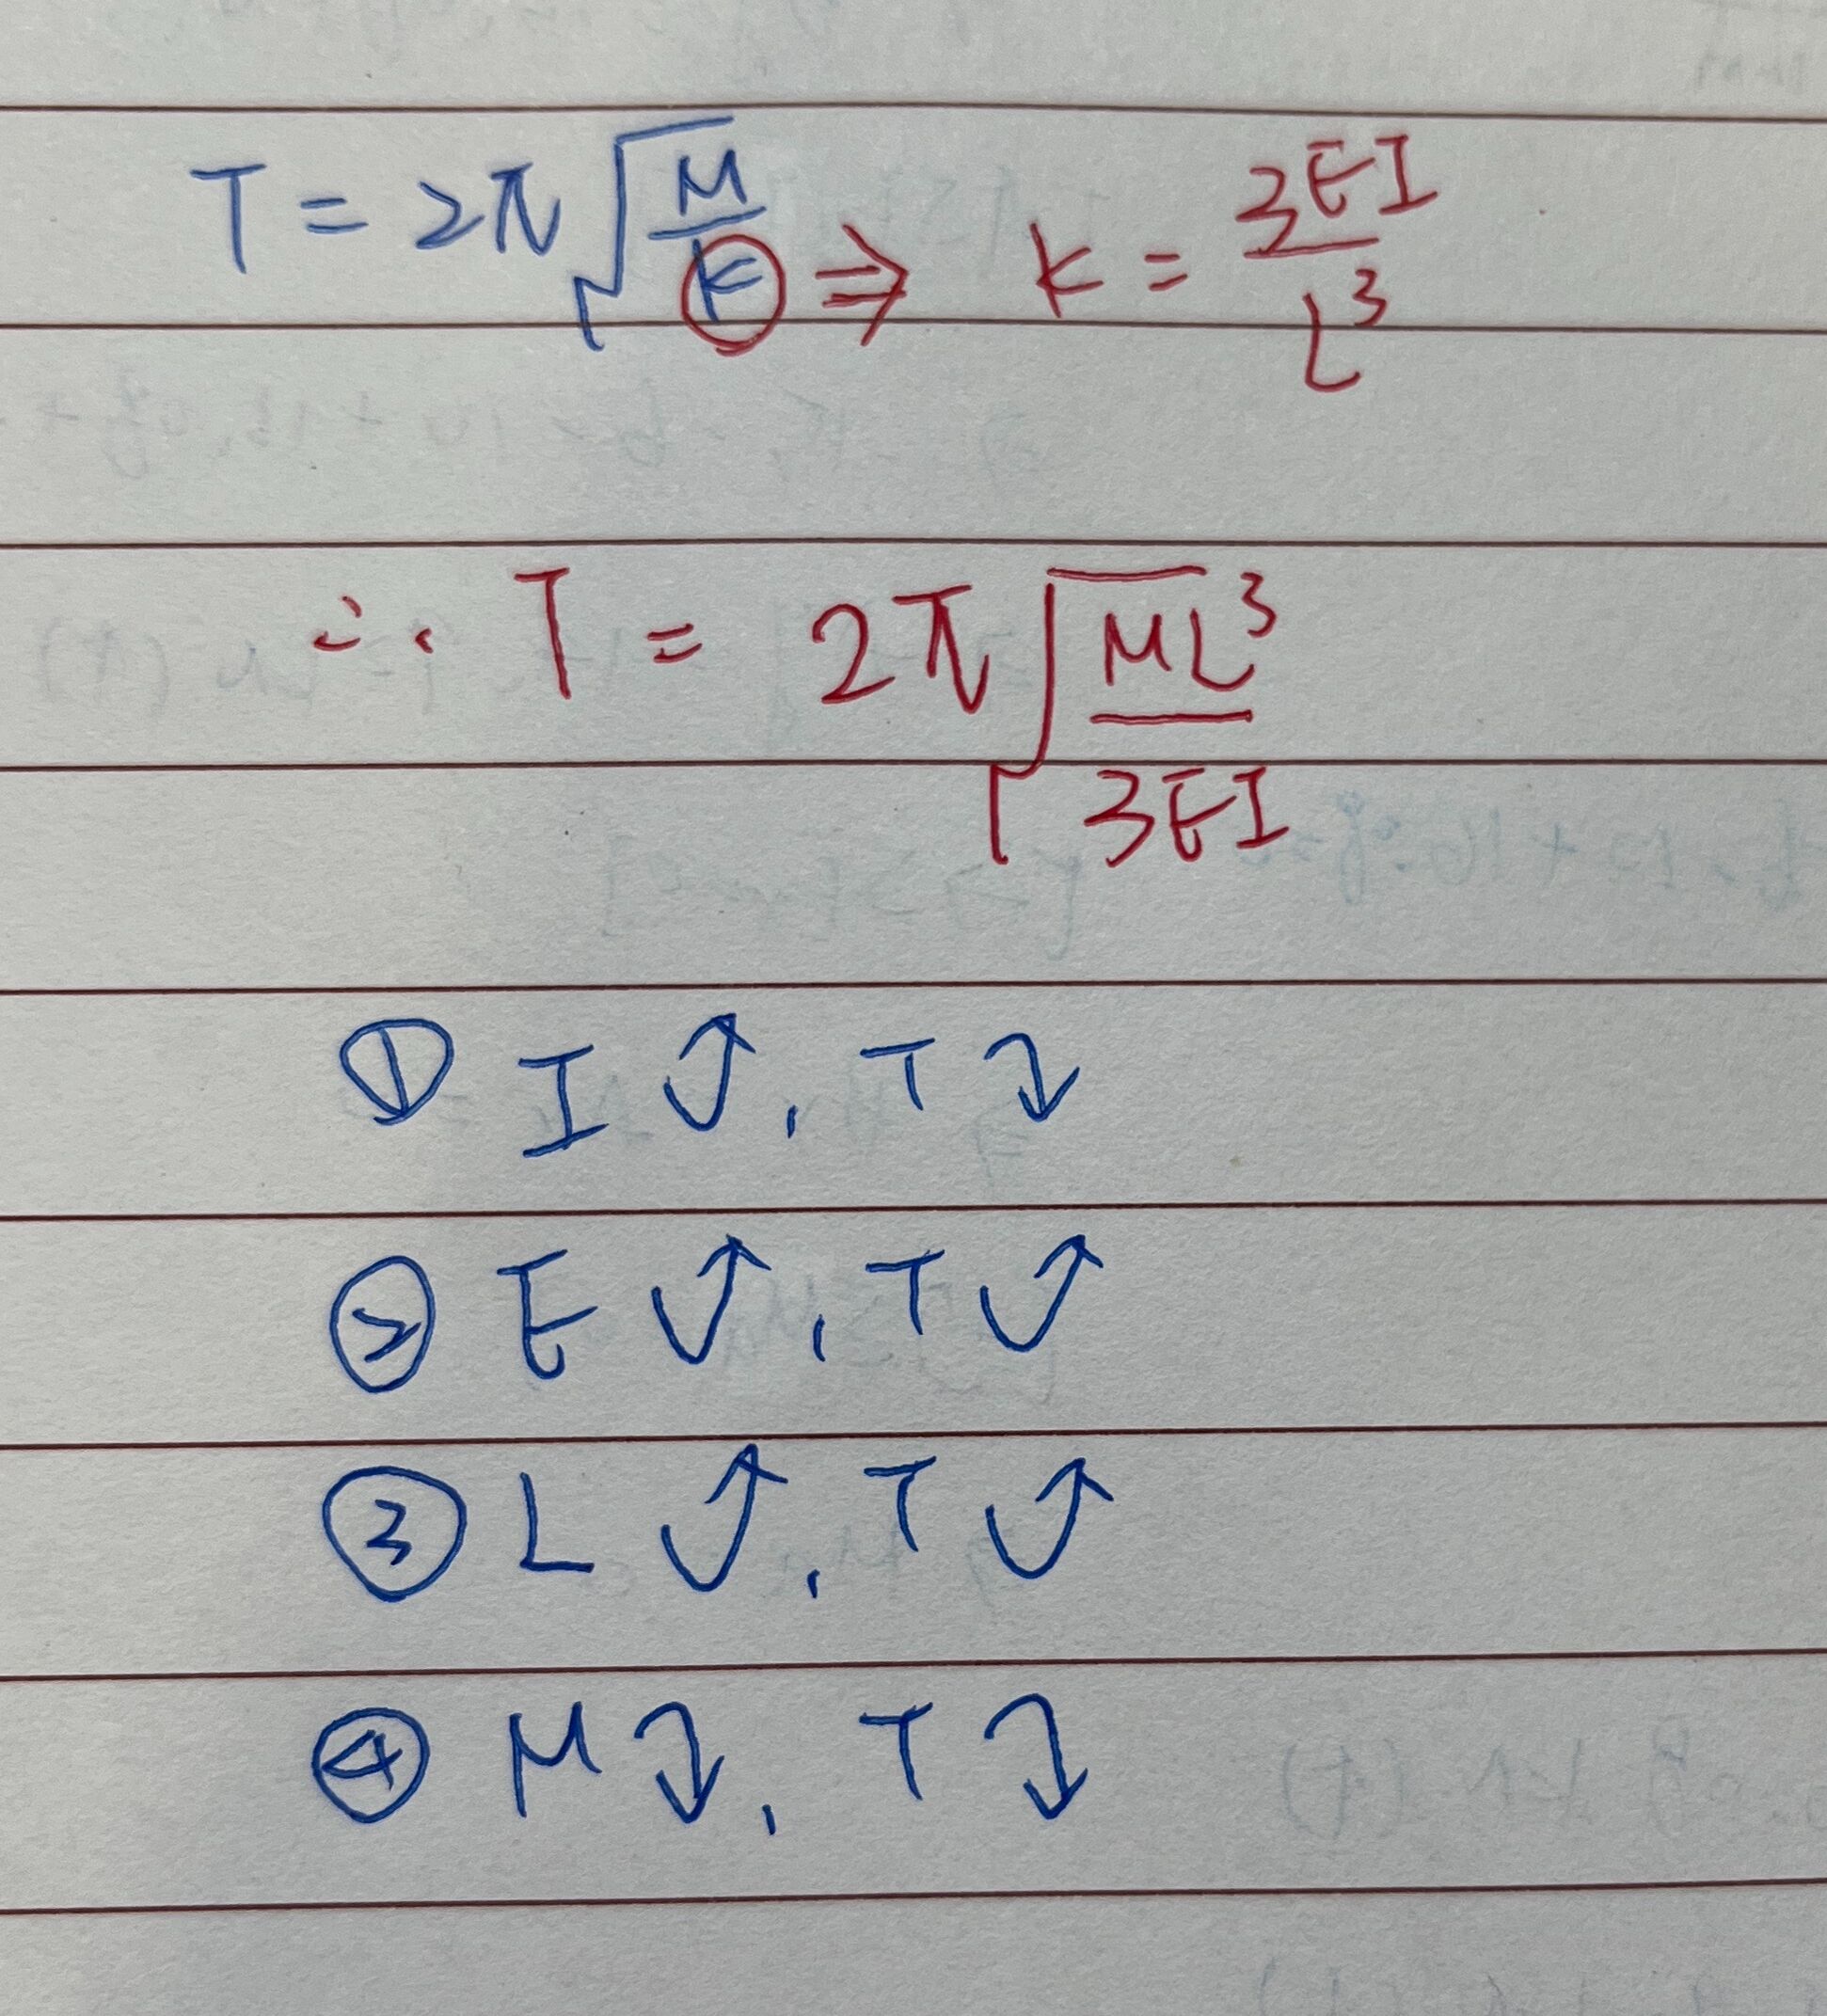 T = 2π√(M/K) ⇒ K = 3EI/L³
∴ T = 2π√(ML³/3EI)
① I ↑, T ↓
② E ↑, T ↑
③ L ↑, T ↑
④ M ↓, T ↓